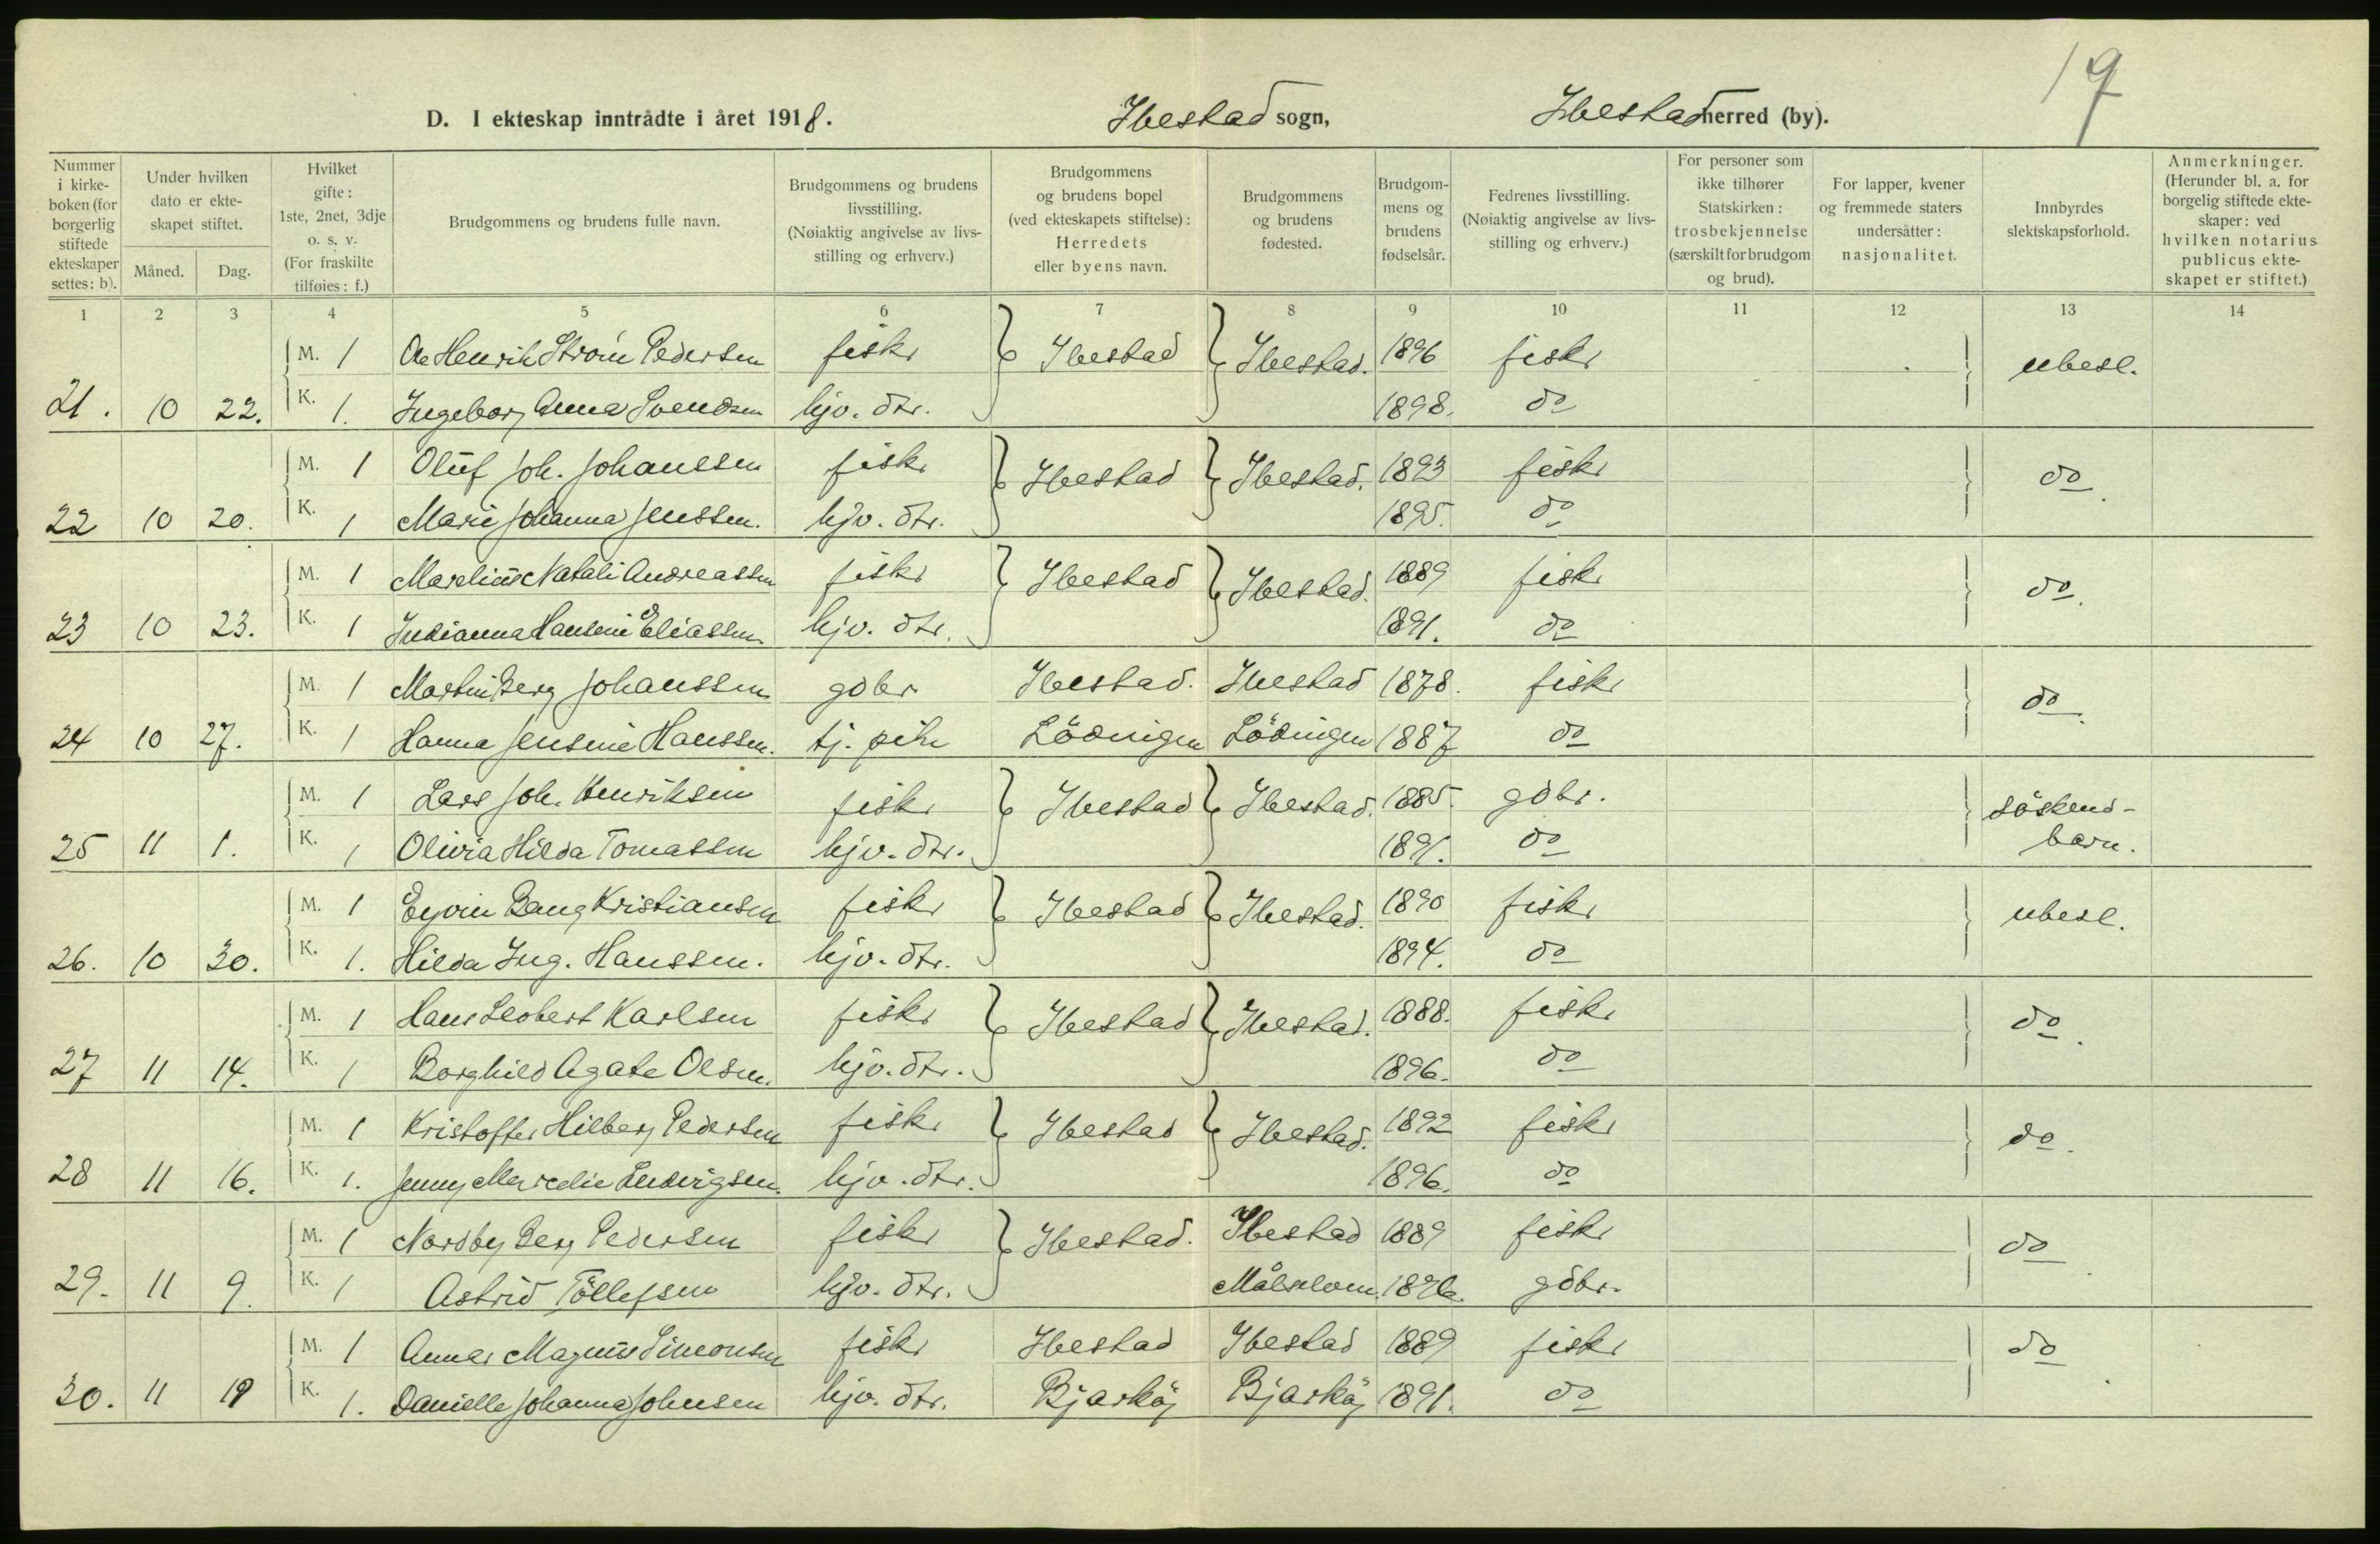 19
D. I ekteskap inntrådte i året 1918. Ibestad sogn, Ibestad herred (by).
Nummer i kirkeboken (for borgerlig stiftede ekteskaper settes: b).
Under hvilken dato er ekteskapet stiftet.
Måned. Dag.
Hvilket gifte: 1ste, 2net, 3dje o. s. v. (For fraskilte tilføies: f.)
Brudgommens og brudens fulle navn.
Brudgommens og brudens livsstilling. (Nøiaktig angivelse av livsstilling og erhverv.)
Brudgommens og brudens bopel (ved ekteskapets stiftelse): Herredets eller byens navn.
Brudgommens og brudens fødested.
Brudgommens og brudens fødselsår.
Fedrenes livsstilling. (Nøiaktig angivelse av livsstilling og erhverv.)
For personer som ikke tilhører Statskirken: trosbekjennelse (særskilt for brudgom og brud).
For lapper, kvener og fremmede staters undersåtter: nasjonalitet.
Innbyrdes slektskapsforhold.
Anmerkninger. (Herunder bl. a. for borgelig stiftede ekteskaper: ved hvilken notarius publicus ekteskapet er stiftet.)
1 2 3 4 5 6 7 8 9 10 11 12 13 14
M. 1 Ole Henrik Strøm Pedersen fisker Ibestad Ibestad. 1896 fisker ubesl.
21. 10 22. K. 1. Ingeborg Anna Svendsen hjv. dtr. 1898. do
M. 1 Oluf Joh. Johanssen fisker Ibestad Ibestad. 1893 fisker do.
22 10 20. K. 1 Marie Johanna Jenssen. hjv. dtr. 1895. do
M. 1 Marelius Natali Andreassen fisker Ibestad Ibestad. 1889 fisker do.
23 10 23. K. 1 Indianna Hansine Eliassen hjv. dtr. 1891. do
M. 1 Martin Berg Johanssen gdbr Ibestad. Ibestad 1878. fisker do.
24 10 27. K. 1 Hanna Jensine Hanssen. tj. pike Lödingen Lödingen 1887 do
M. 1 Lars Joh. Henriksen fisker Ibestad Ibestad. 1885. gdbr. söskend-
25 11 1. K. 1 Olivia Hilda Tomassen hjv. dtr. 1891. do barn.
M. 1 Eyvin Bang Kristiansen fisker Ibestad Ibestad. 1890 fisker ubesl.
26. 10 30. K. 1. Hilda Ing. Hanssen. hjv. dtr. 1894. do
M. 1 Hans Leobert Karlsen fisker Ibestad Ibestad. 1888. fisker do.
27 11 14. K. 1 Borghild Agate Olsen. hjv. dtr. 1896. do
M. 1 Kristoffer Hilberg Pedersen fisker Ibestad Ibestad. 1892 fisker do.
28 11 16. K. 1. Jenny Marcelie Ludvigsen. hjv. dtr. 1896. do
M. 1 Nordby Berg Pedersen fisker Ibestad. Ibestad 1889 fisker do.
29. 11 9. K. 1 Astrid Töllefsen hjv. dtr. Målselven. 1896. gdbr.
M. 1 Annar Magnus Simonsen fisker Ibestad Ibestad 1889 fisker do.
30. 11 19 K. 1. Danielle Johanna Johnsen hjv. dtr. Bjarköj Bjarköj 1891. do